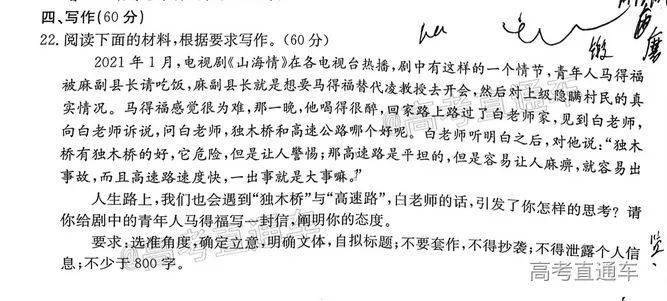 四、写作(60分)
22. 阅读下面的材料,根据要求写作。(60分)
2021年1月,电视剧《山海情》在各电视台热播,剧中有这样的一个情节,青年人马得福
被麻副县长请吃饭,麻副县长就是想要马得福替代凌教授去开会,然后对上级隐瞒村民的真
实情况。马得福感觉很为难,那一晚,他喝得很醉,回家路上路过了白老师家,见到白老师,
向白老师诉说,问白老师,独木桥和高速公路哪个好呢。白老师听明白之后,对他说:“独木
桥有独木桥的好,它危险,但是让人警惕;那高速路是平坦的,但是容易让人麻痹,就容易出
事故,而且高速路速度快,一出事就是大事嘛。”
人生路上,我们也会遇到“独木桥”与“高速路”,白老师的话,引发了你怎样的思考?请
你给剧中的青年人马得福写一封信,阐明你的态度。
要求:选准角度,确定立意,明确文体,自拟标题;不要套作,不得抄袭;不得泄露个人信
息;不少于800字。
高考直通车